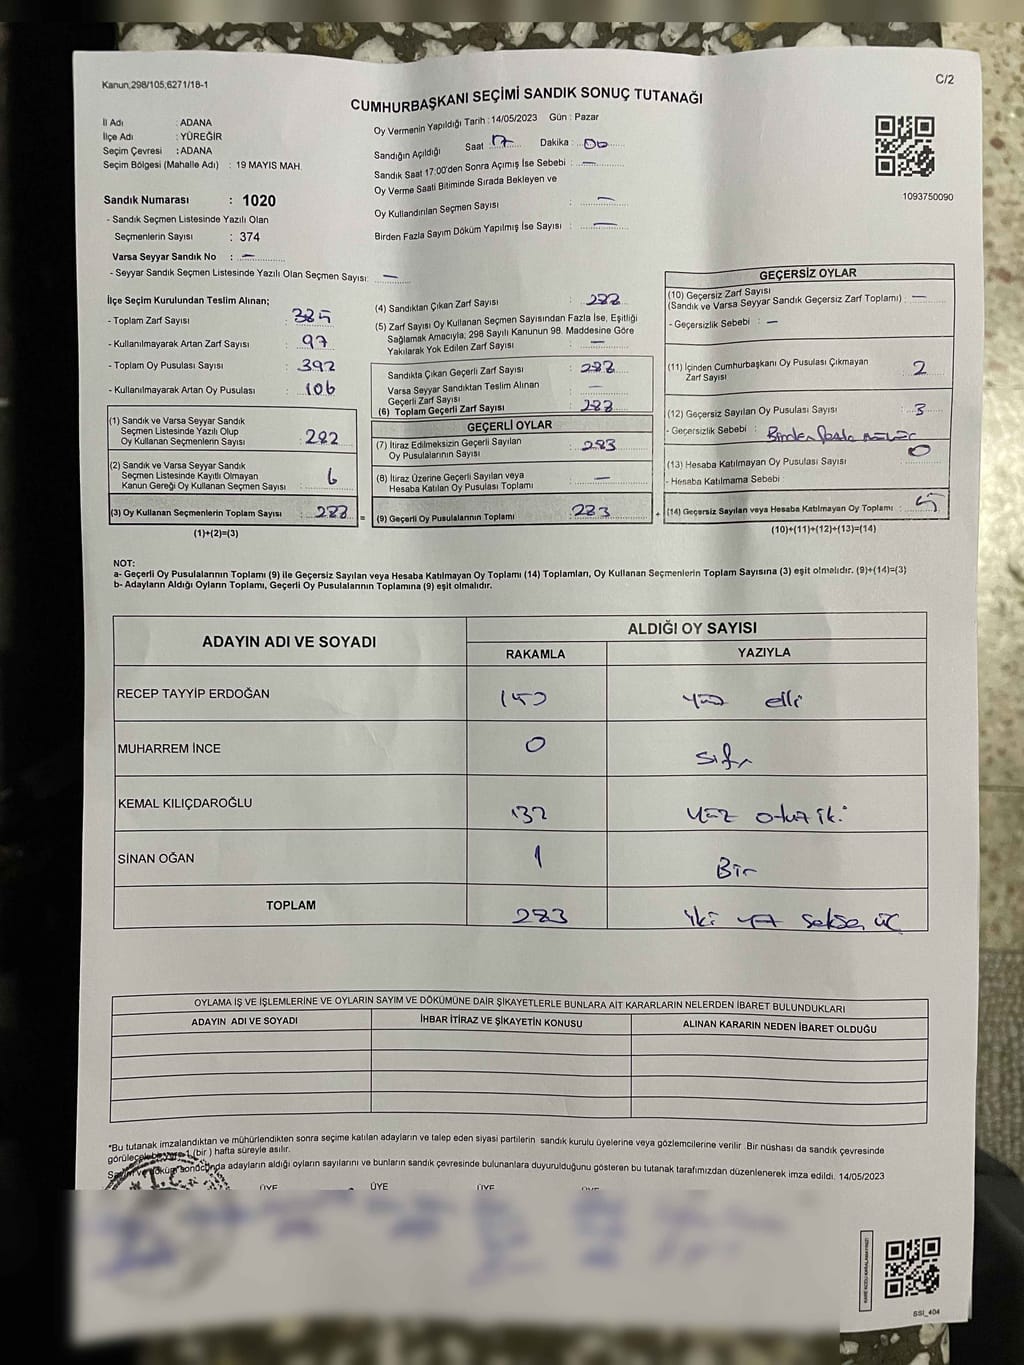 Kanun;298/105;6271/18-1
C/2
CUMHURBAŞKANI SEÇİMİ SANDIK SONUÇ TUTANAĞI
İl Adı : ADANA
İlçe Adı : YÜREĞİR
Seçim Çevresi : ADANA
Seçim Bölgesi (Mahalle Adı) : 19 MAYIS MAH.
Oy Vermenin Yapıldığı Tarih : 14/05/2023 Gün : Pazar
Sandığın Açıldığı Saat 17 Dakika : 00
Sandık Saat 17:00'den Sonra Açımış İse Sebebi : —
Oy Verme Saati Bitiminde Sırada Bekleyen ve
Oy Kullandırılan Seçmen Sayısı : —
Birden Fazla Sayım Döküm Yapılmış İse Sayısı : —
1093750090
Sandık Numarası : 1020
- Sandık Seçmen Listesinde Yazılı Olan
Seçmenlerin Sayısı : 374
Varsa Seyyar Sandık No : —
- Seyyar Sandık Seçmen Listesinde Yazılı Olan Seçmen Sayısı: —
İlçe Seçim Kurulundan Teslim Alınan;
- Toplam Zarf Sayısı : 385
- Kullanılmayarak Artan Zarf Sayısı : 97
- Toplam Oy Pusulası Sayısı : 392
- Kullanılmayarak Artan Oy Pusulası : 106
(1) Sandık ve Varsa Seyyar Sandık
Seçmen Listesinde Yazılı Olup
Oy Kullanan Seçmenlerin Sayısı : 282
(2) Sandık ve Varsa Seyyar Sandık
Seçmen Listesinde Kayıtlı Olmayan
Kanun Gereği Oy Kullanan Seçmen Sayısı : 6
(3) Oy Kullanan Seçmenlerin Toplam Sayısı : 288
(1)+(2)=(3)
(4) Sandıktan Çıkan Zarf Sayısı : 288
(5) Zarf Sayısı Oy Kullanan Seçmen Sayısından Fazla İse, Eşitliği
Sağlamak Amacıyla; 298 Sayılı Kanunun 98. Maddesine Göre
Yakılarak Yok Edilen Zarf Sayısı : —
Sandıkta Çıkan Geçerli Zarf Sayısı : 288
Varsa Seyyar Sandıktan Teslim Alınan
Geçerli Zarf Sayısı : —
(6) Toplam Geçerli Zarf Sayısı : 288
GEÇERLİ OYLAR
(7) İtiraz Edilmeksizin Geçerli Sayılan
Oy Pusulalarının Sayısı : 283
(8) İtiraz Üzerine Geçerli Sayılan veya
Hesaba Katılan Oy Pusulası Toplamı : —
(9) Geçerli Oy Pusulalarının Toplamı : 283
GEÇERSİZ OYLAR
(10) Geçersiz Zarf Sayısı
(Sandık ve Varsa Seyyar Sandık Geçersiz Zarf Toplamı) : —
- Geçersizlik Sebebi : —
(11) İçinden Cumhurbaşkanı Oy Pusulası Çıkmayan
Zarf Sayısı : 2
(12) Geçersiz Sayılan Oy Pusulası Sayısı : 3
- Geçersizlik Sebebi : Birden fazla mühür
(13) Hesaba Katılmayan Oy Pusulası Sayısı : 0
- Hesaba Katılmama Sebebi :
(14) Geçersiz Sayılan veya Hesaba Katılmayan Oy Toplamı : 5
(10)+(11)+(12)+(13)=(14)
NOT:
a- Geçerli Oy Pusulalarının Toplamı (9) ile Geçersiz Sayılan veya Hesaba Katılmayan Oy Toplamı (14) Toplamları, Oy Kullanan Seçmenlerin Toplam Sayısına (3) eşit olmalıdır. (9)+(14)=(3)
b- Adayların Aldığı Oyların Toplamı, Geçerli Oy Pusulalarının Toplamına (9) eşit olmalıdır.
ADAYIN ADI VE SOYADI ALDIĞI OY SAYISI
RAKAMLA YAZIYLA
RECEP TAYYİP ERDOĞAN 150 yüz elli
MUHARREM İNCE 0 sıfır
KEMAL KILIÇDAROĞLU 132 yüz otuz iki
SİNAN OĞAN 1 Bir
TOPLAM 283 iki yüz seksen üç
OYLAMA İŞ VE İŞLEMLERİNE VE OYLARIN SAYIM VE DÖKÜMÜNE DAİR ŞİKAYETLERLE BUNLARA AİT KARARLARIN NELERDEN İBARET BULUNDUKLARI
ADAYIN ADI VE SOYADI İHBAR İTİRAZ VE ŞİKAYETİN KONUSU ALINAN KARARIN NEDEN İBARET OLDUĞU
*Bu tutanak imzalandıktan ve mühürlendikten sonra seçime katılan adayların ve talep eden siyasi partilerin sandık kurulu üyelerine veya gözlemcilerine verilir .Bir nüshası da sandık çevresinde
görülecek bir yere 1 (bir ) hafta süreyle asılır.
Sayım ve döküm sonucunda adayların aldığı oyların sayılarını ve bunların sandık çevresinde bulunanlara duyurulduğunu gösteren bu tutanak tarafımızdan düzenlenerek imza edildi. 14/05/2023
ÜYE ÜYE ÜYE ÜYE
T.C.
SSİ_404